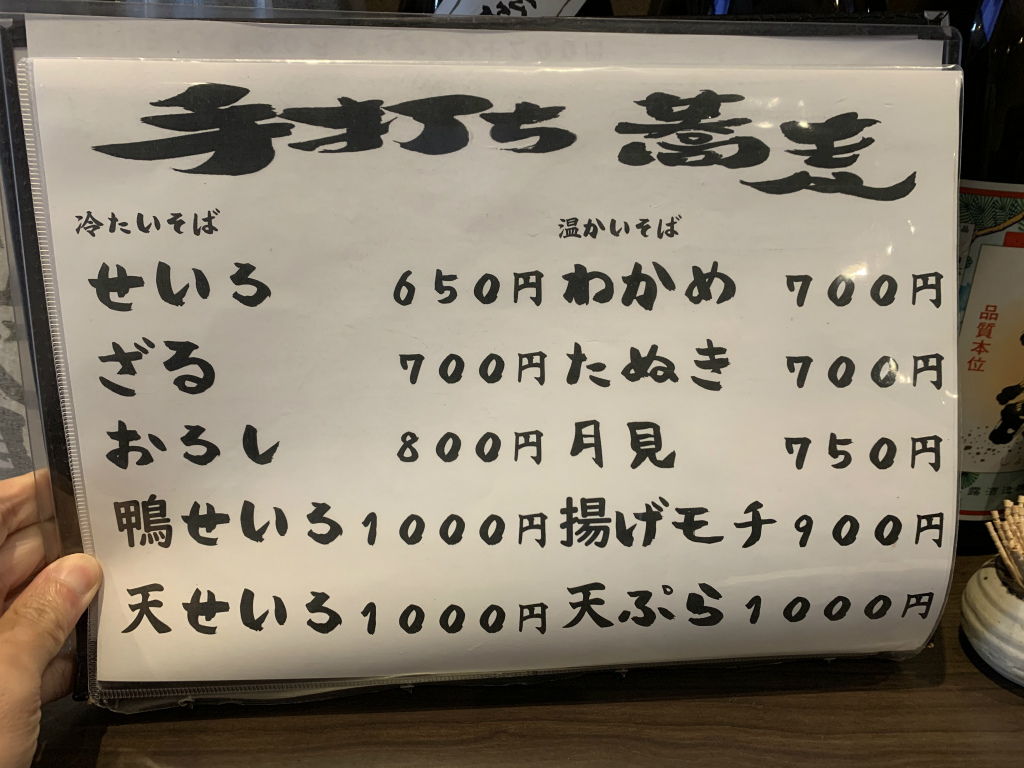 手打ち 蕎麦
冷たいそば
せいろ 650円
ざる 700円
おろし 800円
鴨せいろ 1000円
天せいろ 1000円
温かいそば
わかめ 700円
たぬき 700円
月見 750円
揚げモチ 900円
天ぷら 1000円
品質本位